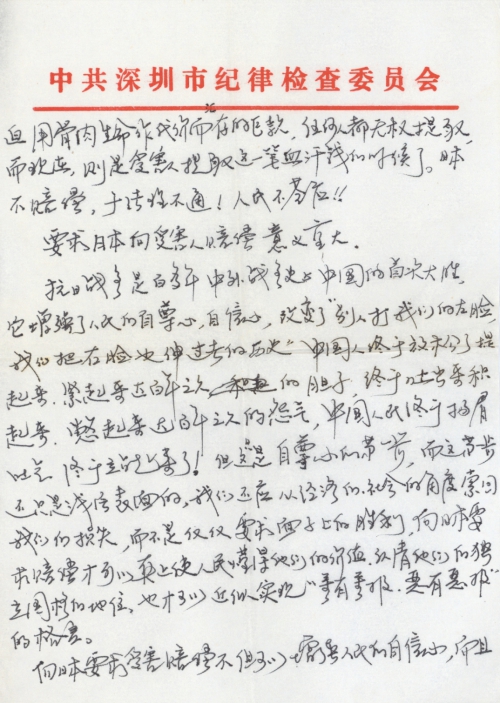 中共深圳市纪律检查委员会
用骨肉生命作代价而存的巨款，任何人都无权提取
而现在，则是受害人提取这一笔血汗钱的时候了。日本
不赔偿，于法理不通！人民不答应！！
要求日本向受害人赔偿意义重大。
抗日战争是百多年中外战争史上中国的首次大胜，
它增强了人民的自尊心，自信心，改变了"别人打我们的左脸，
我们把右脸也伸过去的历史"中国人终于放末了提
起来，紧起来近百年之久的胆子，终于吐出来积
起来，憋起来近百年之久的怨气，中国人民终于扬眉
吐气 终于立起来了！但这是自尊心的第一步，而这第一步
还只是浅层表面的，我们还应从经济的、社会的角度索回
我们的损失，而不是仅仅要求面子上的胜利，向日本要
求赔偿才可以真正使人民懂得他们的价值，认清他们的独
立国格的地位，也才可以近似实现"善有善报，恶有恶报"
的格言。
向日本要求受害赔偿不但可以增强人民的自信心，而且